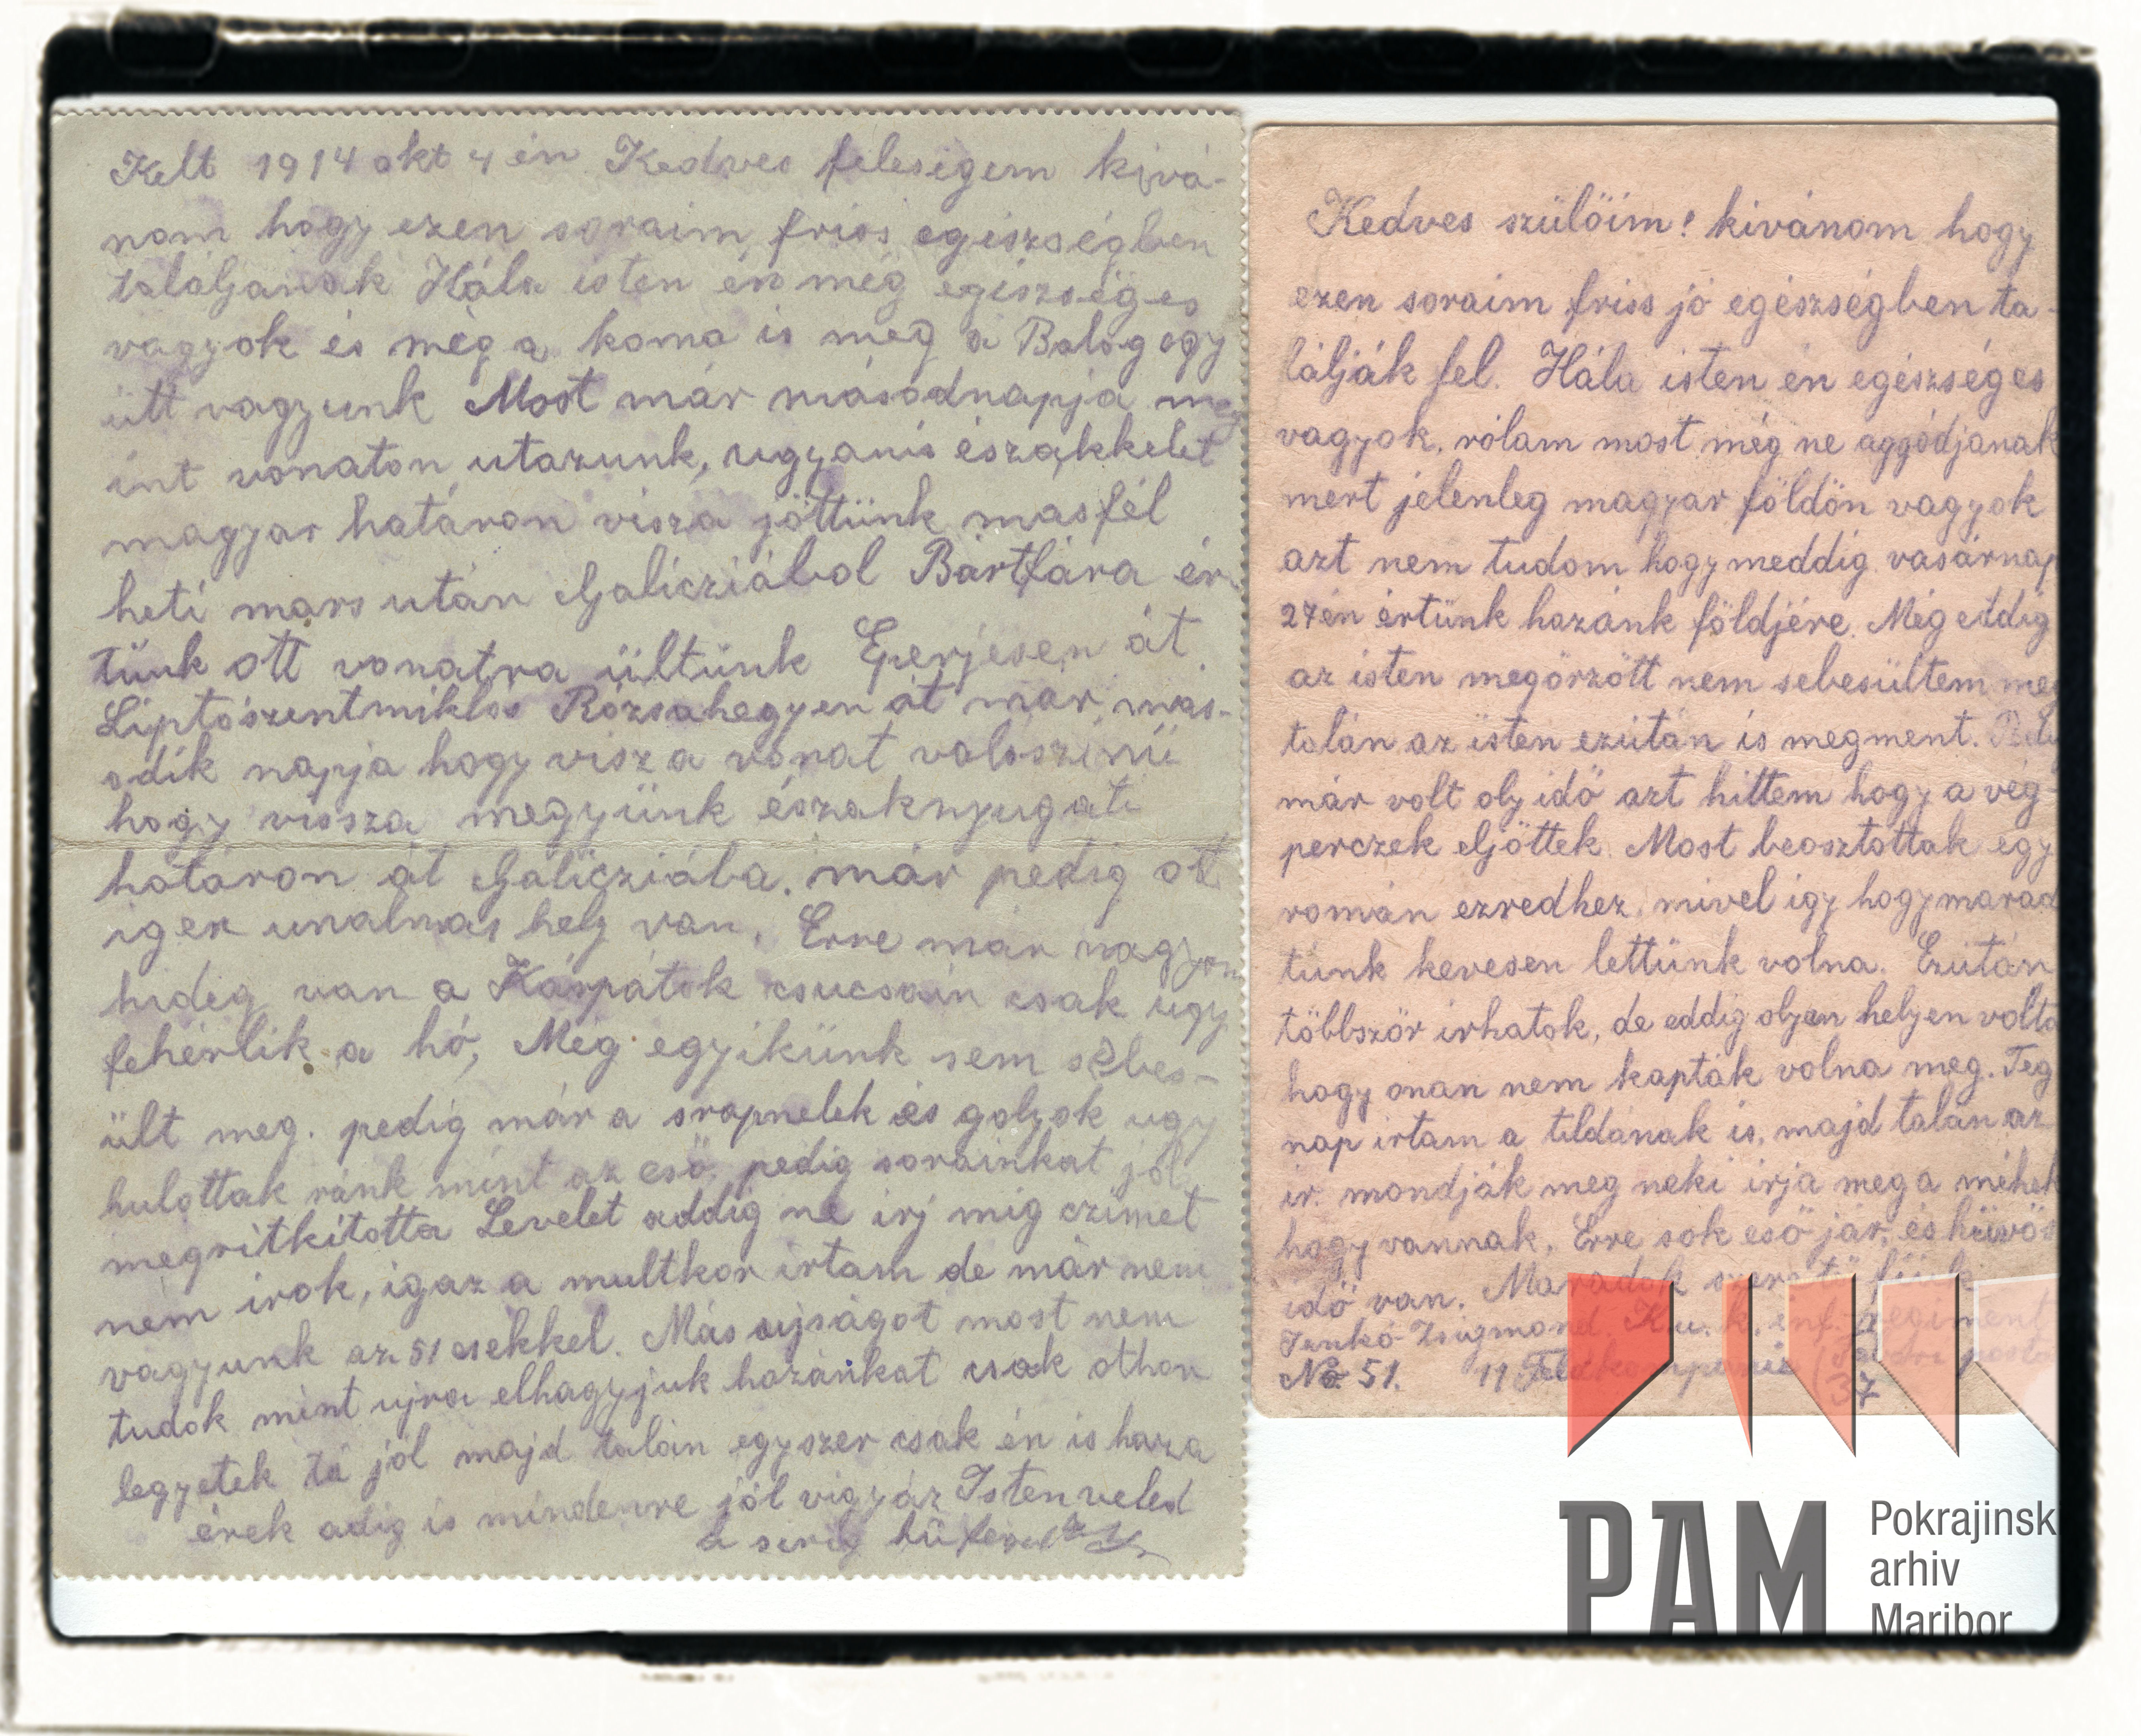 Kelt 1914 okt 4 én Kedves feleségem kivá-
nom hogy ezen soraim friss egiszségben
találjanak Hála isten én még egiszséges
vagyok és még a koma is meg a Balog egy
ütt vagyunk Most már másodnapja meg
int vonaton utazunk, ugyanis északkelet
magyar határon visza jöttünk masfél
heti mars után Galicziábol Bártfára ér
tünk ott vonatra ültünk Eperjesen át
Liptószentmiklós Rózsahegyen át már más-
odik napja hogy visz a vonat valoszinü
hogy vissza megyünk északnyugati
határon át Galicziába. már pedig ot
igen unalmas hely van. Erre már nagyon
hideg van a Kárpátok csucsain csak ugy
fehérlik a hó, Még egyikünk sem sebes-
ült meg. pedig már a srapnelek és golyok ugy
hulottak ránk mint az eső pedig sorainkat jól
megritkitotta Levelet addig ne irj mig czimet
nem irok, igaz a multkor irtam de már nem
vagyunk az 51 esekkel. Más ujságot most nem
tudok mint ujra elhagyjuk hazánkat csak othon
legyetek ti jól majd talán egyszer csak én is haza
érek adig is mindenre jól vigyáz Isten veled
a sirig hü
Kedves szülőim! kivánom hogy
ezen soraim friss jó egészségben ta-
lálják fel. Hála isten én egészséges
vagyok, rólam most még ne aggódjanak
mert jelenleg magyar földön vagyok
azt nem tudom hogy meddig vasárnap
27én értünk hazánk földjére. Még eddig
az isten megörzött nem sebesültem meg
talán az isten ezután is megment.
már volt oly idő azt hittem hogy a vég
perczek eljöttek. Most beosztottak egy
román ezredhez, mivel igy hogy marad
tunk kevesen lettünk volna. Ezután
többször irhatok, de eddig olyan helyen volta
hogy onan nem kapták volna meg. Teg
nap irtam a tildának is, majd talán az
ir. mondják meg neki irja meg a méhek
hogy vannak. Erre sok eső jár, és hüvös
idő van. Maradok szerető fiuk
Jenkó Zsigmond. K. u. k. inf. regiment
No 51. 11 Feldkompanie ( posta
37
PAM
Pokrajinsk
arhiv
Maribor